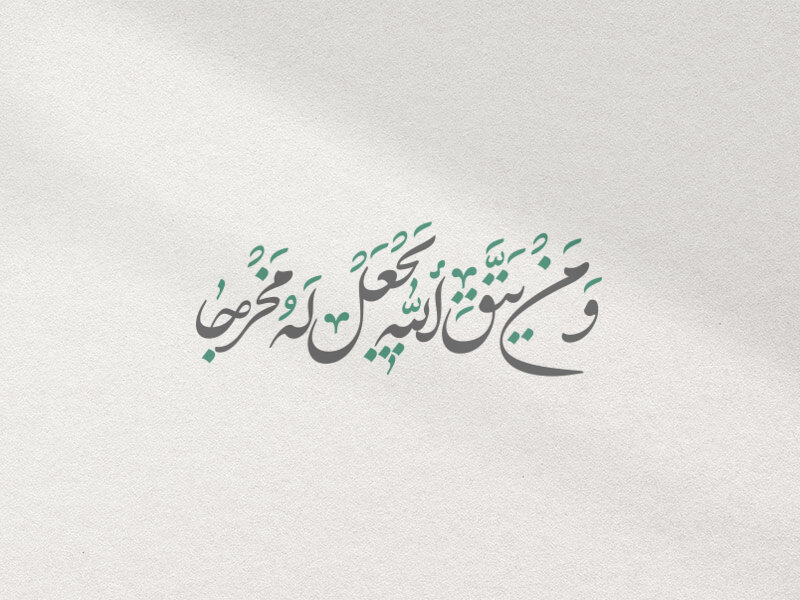 وَمَنْ يَتَّقِ ٱللَّهَ يَجْعَلْ لَهُ مَخْرَجًا